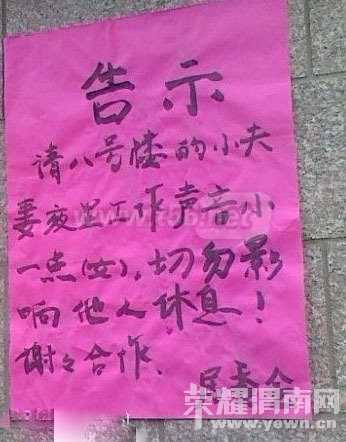 告示
请八号楼的小夫
妻夜里工作声音小
一点(女),切勿影
响他人休息!
谢々合作.
居委会
荣耀渭南网
www.yewn.cn